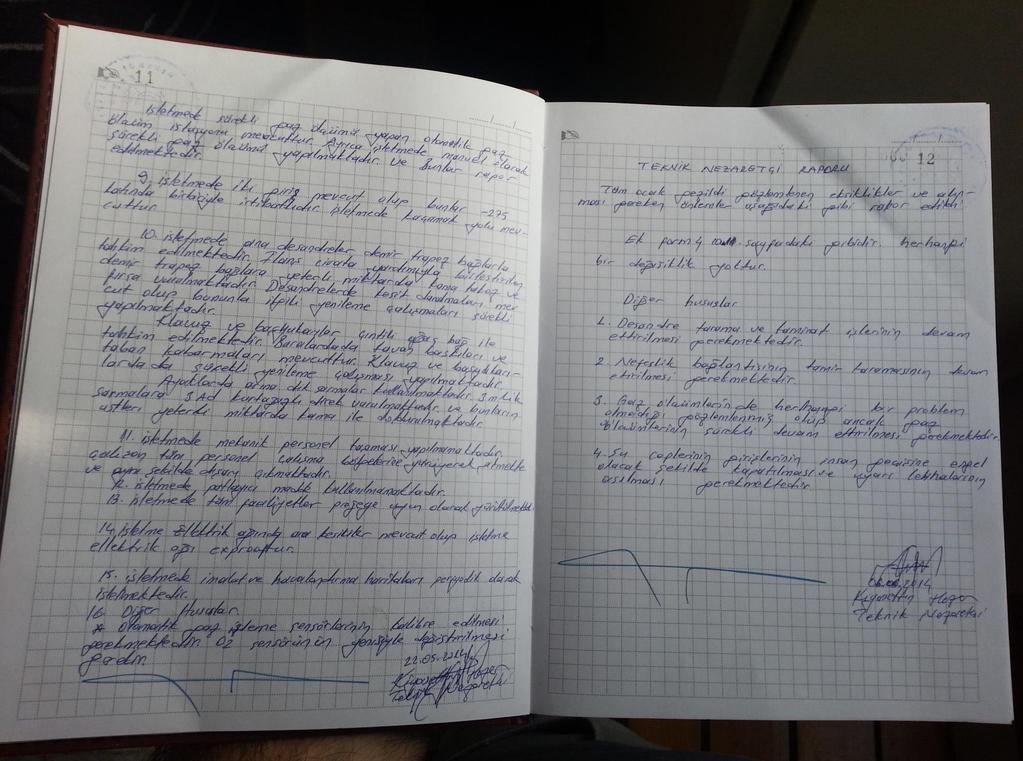 11
işletmede sürekli gaz ölçümü yapan otomatik gaz
ölçüm istasyonu mevcuttur. Ayrıca işletmede manuel olarak
sürekli gaz ölçümü yapılmaktadır. ve Bunlar rapor
edilmektedir.
9. işletmede iki giriş mevcut olup bunlar -275
katında birbiriyle irtibatlıdır. işletmede kaçamak yolu mev-
cuttur
10. işletmede ana desandreler demir trapez bağlarla
tahkim edilmektedir. Flanş civata yardımıyla birleştirilen
demir trapez bağlara yeterli miktarda kama takoz ve
fırça vurulmaktadır. Desandrelerde kesit daralmaları mev
cut olup bununla ilgili yenileme çalışmaları sürekli
yapılmaktadır.
Klavuz ve başyukarılar çıntılı ağaç bağ ile
tahkim edilmektedir. Buralardada tavan baskıları ve
taban kabarmaları mevcuttur. Klavuz ve başyukarı-
larda da sürekli yenileme çalışması yapılmaktadır.
Ayaklarda arına dik sarmalar kullanılmaktadır. 3 m lik
sarmalara 3 Ad direk vurulmaktadır. ve bunların
üstleri yeterli miktarda kama ile doldurulmaktadır.
11. işletmede mekanik personel taşıması yapılmamaktadır.
çalışan tüm personel çalışma bölgelerine yürüyerek gitmekte
ve aynı şekilde dışarı çıkmaktadır.
12. işletmede patlayıcı madde kullanılmamaktadır.
13. işletmede tüm faaliyetler projeye uygun olarak yürütülmekte
14. işletme Ellektrik ağında ara kesiciler mevcut olup işletme
ellektrik ağı exprooftur.
15. işletmede imalat ve havalandırma haritaları periyodik olarak
işlenmektedir.
16. Diğer Hususlar.
* Otomatik gaz izleme sensörlerinin kalibre edilmesi
gerekmektedir. O2 sensörünün yenisiyle değiştirilmesi
gerekir.
22.05.2014
Teknik Nezaretçi
12
TEKNİK NEZARETÇİ RAPORU
Tüm ocak gezildi gözlemlenen eksiklikler ve alın-
ması gereken önlemler aşağıdaki gibi rapor edildi
Ek form 4 sayfadaki gibidir. herhangi
bir değişiklik yoktur.
Diğer hususlar
1. Desandre tarama ve tamirat işlerinin devam
ettirilmesi gerekmektedir.
2. Nefeslik bağlantısının tamir taramasının devam
ettirilmesi gerekmektedir.
3. Gaz ölçümlerinde herhangi bir problem
olmadığı gözlemlenmiş olup ancak gaz
ölçümlerinin sürekli devam ettirilmesi gerekmektedir.
4. Su ceplerinin girişlerinin insan geçişine engel
olacak şekilde kapatılması ve uyarı levhalarının
asılması gerekmektedir.
2014
Teknik Nezaretçi